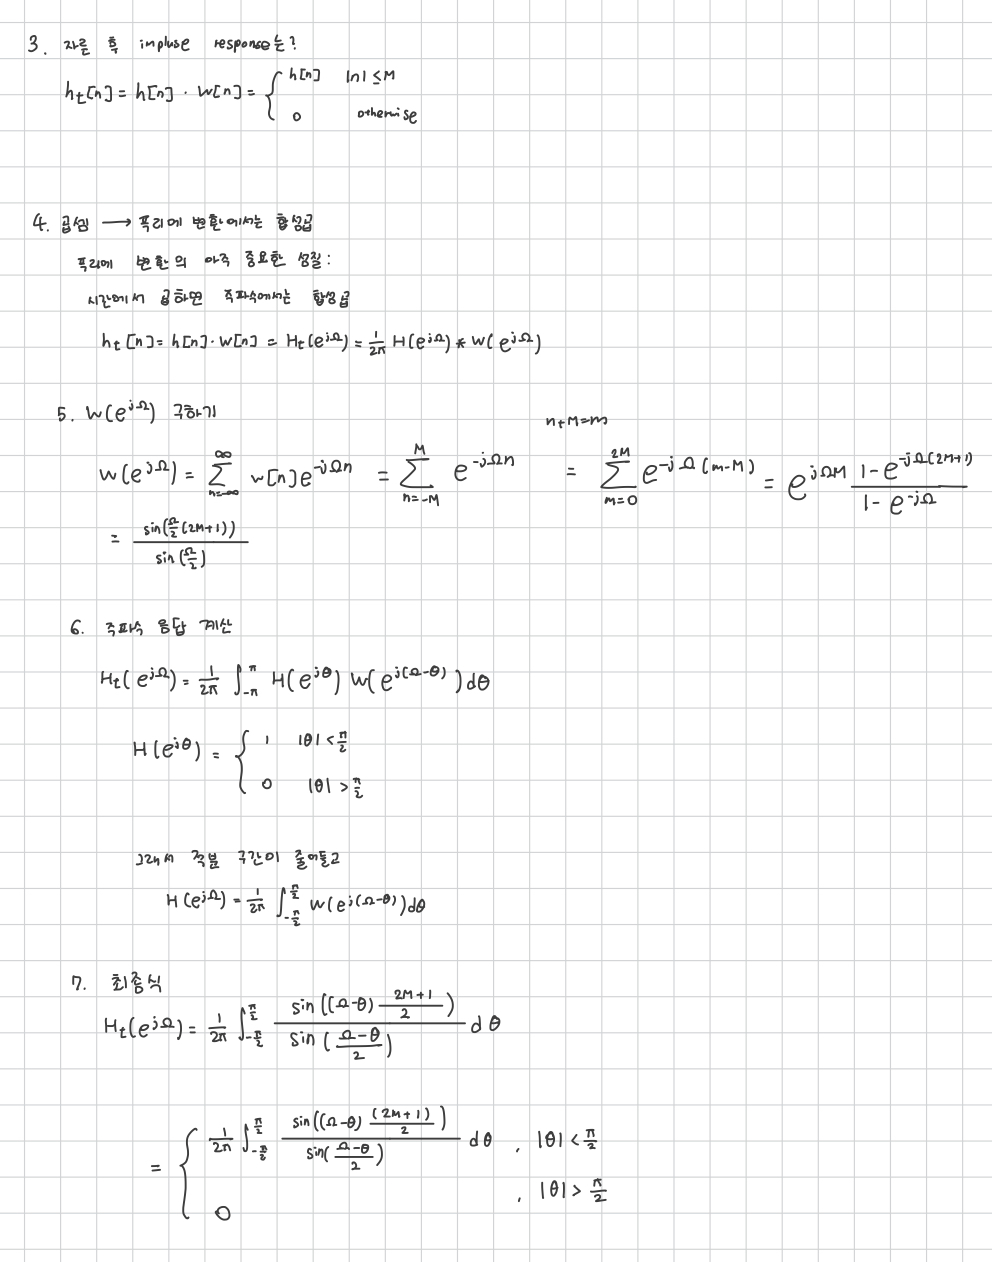 3. 자른 후 impluse response는?
ht[n] = h[n] · w[n] = { h[n] |n| ≤ M
0 otherwise
4. 곱셈 → 푸리에 변환에서는 합성곱
푸리에 변환의 아주 중요한 성질:
시간에서 곱하면 주파수에서는 합성곱
ht[n] = h[n] · w[n] = Ht(e^{jΩ}) = 1/2π H(e^{jΩ}) * W(e^{jΩ})
5. W(e^{jΩ}) 구하기
n+M=m
W(e^{jΩ}) = ∑_{n=-∞}^{∞} w[n]e^{-jΩn} = ∑_{n=-M}^{M} e^{-jΩn} = ∑_{m=0}^{2M} e^{-jΩ(m-M)} = e^{jΩM} (1-e^{-jΩ(2M+1)})/(1-e^{-jΩ})
= sin(Ω/2(2M+1))/sin(Ω/2)
6. 주파수 응답 계산
Ht(e^{jΩ}) = 1/2π ∫_{-π}^{π} H(e^{jθ}) W(e^{j(Ω-θ)})dθ
H(e^{jθ}) = { 1 |θ| < π/2
0 |θ| > π/2
그래서 적분 구간이 줄어들고
H(e^{jΩ}) = 1/2π ∫_{-π/2}^{π/2} W(e^{j(Ω-θ)})dθ
7. 최종식
Ht(e^{jΩ}) = 1/2π ∫_{-π/2}^{π/2} sin((Ω-θ) (2M+1)/2)/sin((Ω-θ)/2) dθ
= { 1/2π ∫_{-π/2}^{π/2} sin((Ω-θ) (2M+1)/2)/sin((Ω-θ)/2) dθ , |θ| < π/2
0 , |θ| > π/2